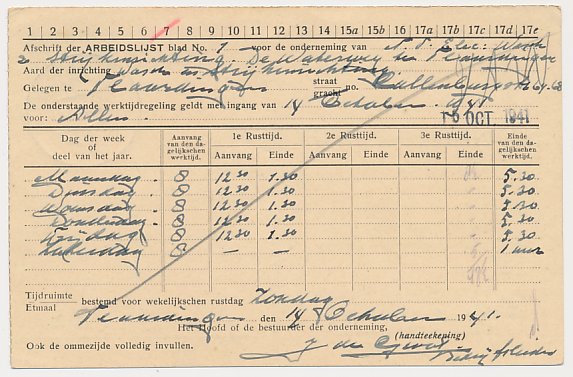 1 2 3 4 5 6 7 8 9 10 11 12 13 14 15a 15b 16 17a 17b 17c 17d 17e
Afschrift der ARBEIDSLIJST blad No. 1 voor de onderneming van N.V. Elec: Wasch
& Strijkinrichting De Waterweg te Vlaardingen
Aard der inrichting Wasch en Strijkinrichting
Gelegen te Vlaardingen straat gracht no.
De onderstaande werktijdregeling geldt met ingang van 14 October 1941
voor: Allen
16 OCT. 1941
Dag der week of deel van het jaar. Aanvang van den dagelijkschen werktijd. 1e Rusttijd. 2e Rusttijd. 3e Rusttijd. Einde van den dagelijkschen werktijd.
Aanvang Einde Aanvang Einde Aanvang Einde
Maandag 8 12.30 1.30 5.30
Dinsdag 8 12.30 1.30 5.30
Woensdag 8 12.30 1.30 5.30
Donderdag 8 12.30 1.30 5.30
Vrijdag 8 12.30 1.30 5.30
Zaterdag 8 — — 1 uur
Tijdruimte Etmaal bestemd voor wekelijkschen rustdag Zondag
Vlaardingen den 14 October 1941.
Het Hoofd of de bestuurder der onderneming,
(handteekening)
Ook de ommezijde volledig invullen. J de Groot